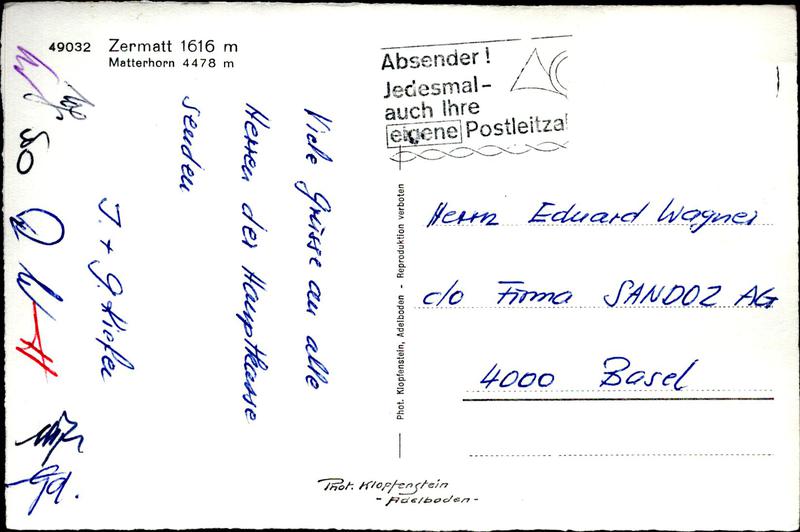 49032 Zermatt 1616 m
Matterhorn 4478 m
Absender!
Jedesmal-
auch Ihre
eigene Postleitza
Viele Grüsse an alle
Herren der Hauptkasse
senden
J. + G. Kiefer
Phot. Klopfenstein, Adelboden - Reproduktion verboten
Herrn Eduard Wagner
c/o Firma SANDOZ AG
4000 Basel
Phot. Klopfenstein
- Adelboden -